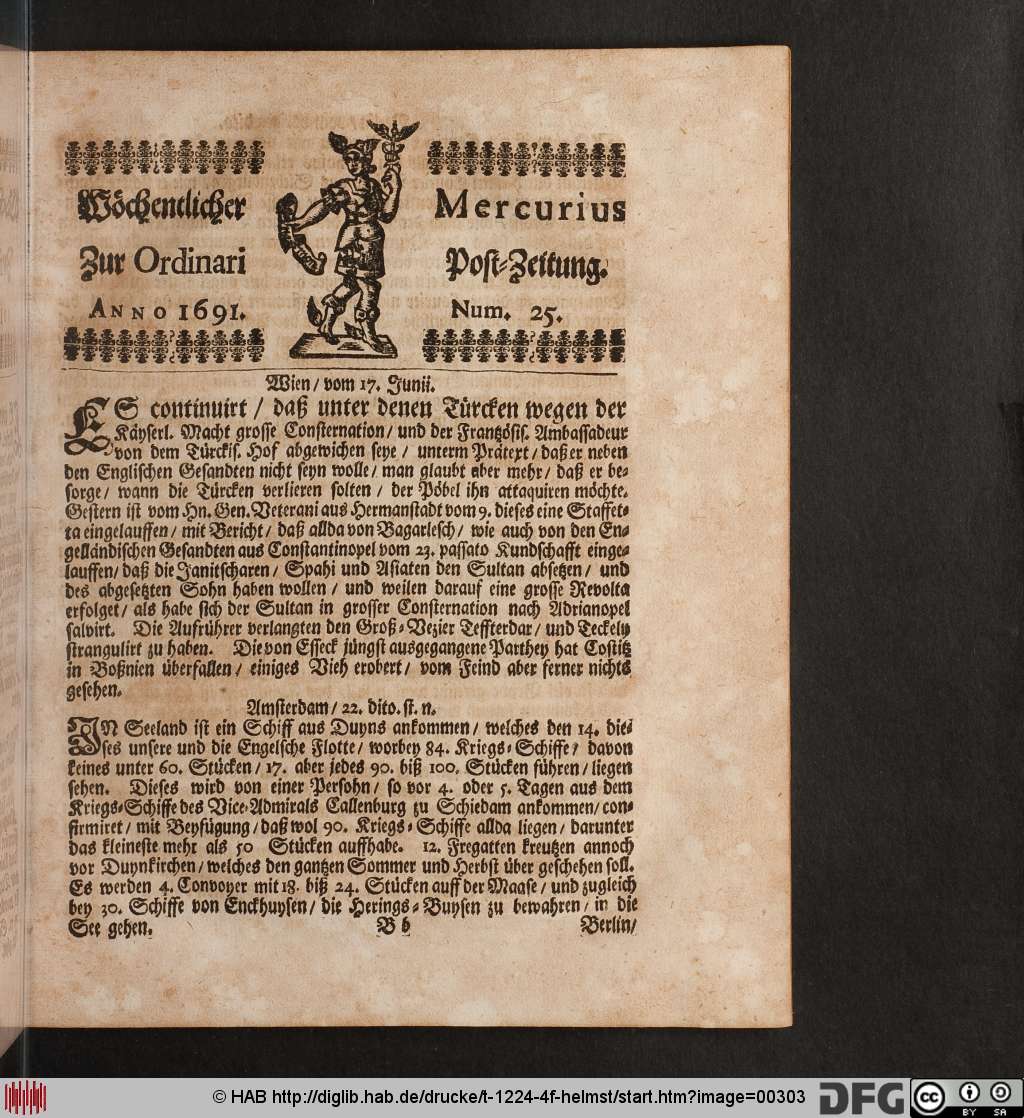 Wöchentlicher Mercurius
Zur Ordinari Post-Zeitung.
ANNO 1691. Num. 25.
Wien / vom 17. Junii.
ES continuirt / daß unter denen Türcken wegen der
Käyserl. Macht grosse Consternation / und der Frantzösis. Ambassadeur
von dem Türckis. Hof abgewichen seye / unterm Prätext / daß er neben
den Englischen Gesandten nicht seyn wolle / man glaubt aber mehr / daß er be-
sorge / wann die Türcken verlieren solten / der Pöbel ihn attaquiren möchte.
Gestern ist vom Hn. Gen. Veterani aus Hermanstadt vom 9. dieses eine Staffet-
ta eingelauffen / mit Bericht / daß allda von Bagarlesch / wie auch von den En-
gelländischen Gesandten aus Constantinopel vom 23. passato Kundschafft einge-
lauffen / daß die Janitscharen / Spahi und Asiaten den Sultan absetzen / und
des abgesetzten Sohn haben wollen / und weilen darauf eine grosse Revolta
erfolget / als habe sich der Sultan in grosser Consternation nach Adrianopel
salvirt. Die Aufrührer verlangten den Groß-Vezier Teffterdar / und Teckely
strangulirt zu haben. Die von Esseck jüngst ausgegangene Parthey hat Costitz
in Boßnien überfallen / einiges Vieh erobert / vom Feind aber ferner nichts
gesehen.
Amsterdam / 22. dito. st. n.
IN Seeland ist ein Schiff aus Duyns ankommen / welches den 14. die-
ses unsere und die Engelsche Flotte / worbey 84. Kriegs-Schiffe / davon
keines unter 60. Stücken / 17. aber jedes 90. biß 100. Stücken führen / liegen
sehen. Dieses wird von einer Persohn / so vor 4. oder 5. Tagen aus dem
Kriegs-Schiffe des Vice-Admirals Callenburg zu Schiedam ankommen / con-
firmiret / mit Beyfügung / daß wol 90. Kriegs-Schiffe allda liegen / darunter
das kleineste mehr als 50 Stücken auffhabe. 12. Fregatten kreutzen annoch
vor Duynkirchen / welches den gantzen Sommer und Herbst über geschehen soll.
Es werden 4. Convoyer mit 18. biß 24. Stücken auff der Maase / und zugleich
bey 30. Schiffe von Enckhuysen / die Herings-Buysen zu bewahren / in die
See gehen. B b Berlin /
© HAB http://diglib.hab.de/drucke/t-1224-4f-helmst/start.htm?image=00303
DFG cc BY SA